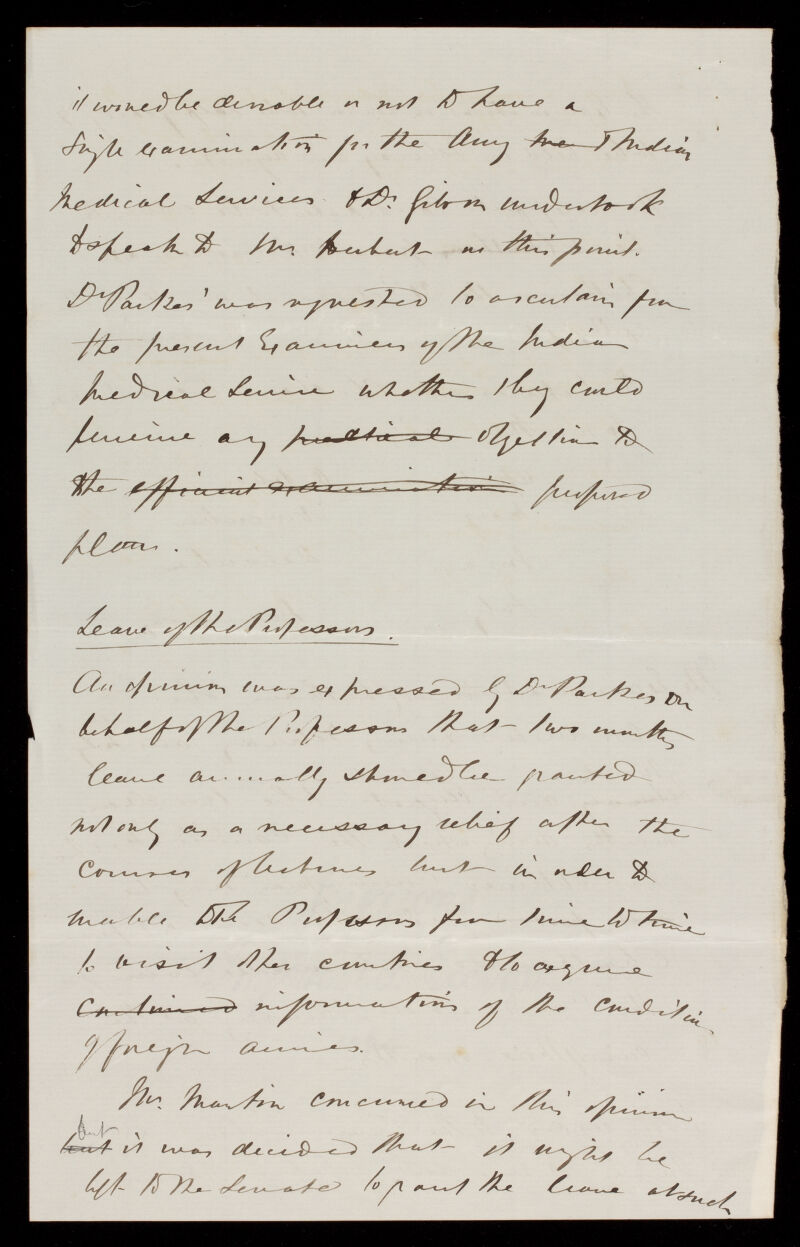 it would be desirable or not to have a
single examination for the Army & Indian
Medical Services. & Dr. Gibson undertook
to speak to Mr Herbert on this point.
Dr Parkes was requested to ascertain from
the present Examiners of the Indian
Medical Service whether they could
perceive any practical objection to
the efficient examination proposed
plans.
Leave of the Professors.
An opinion was expressed by Dr Parkes on
behalf of the Professors that two months
leave annually should be granted
not only as a necessary relief after the
courses of lectures but in order to
enable the Professors from time to time
to visit other countries & to acquire
continued information of the condition
of foreign armies.
Mr. Martin concurred in this opinion
but but it was decided that it might be
left to the Senate to grant the leave at such